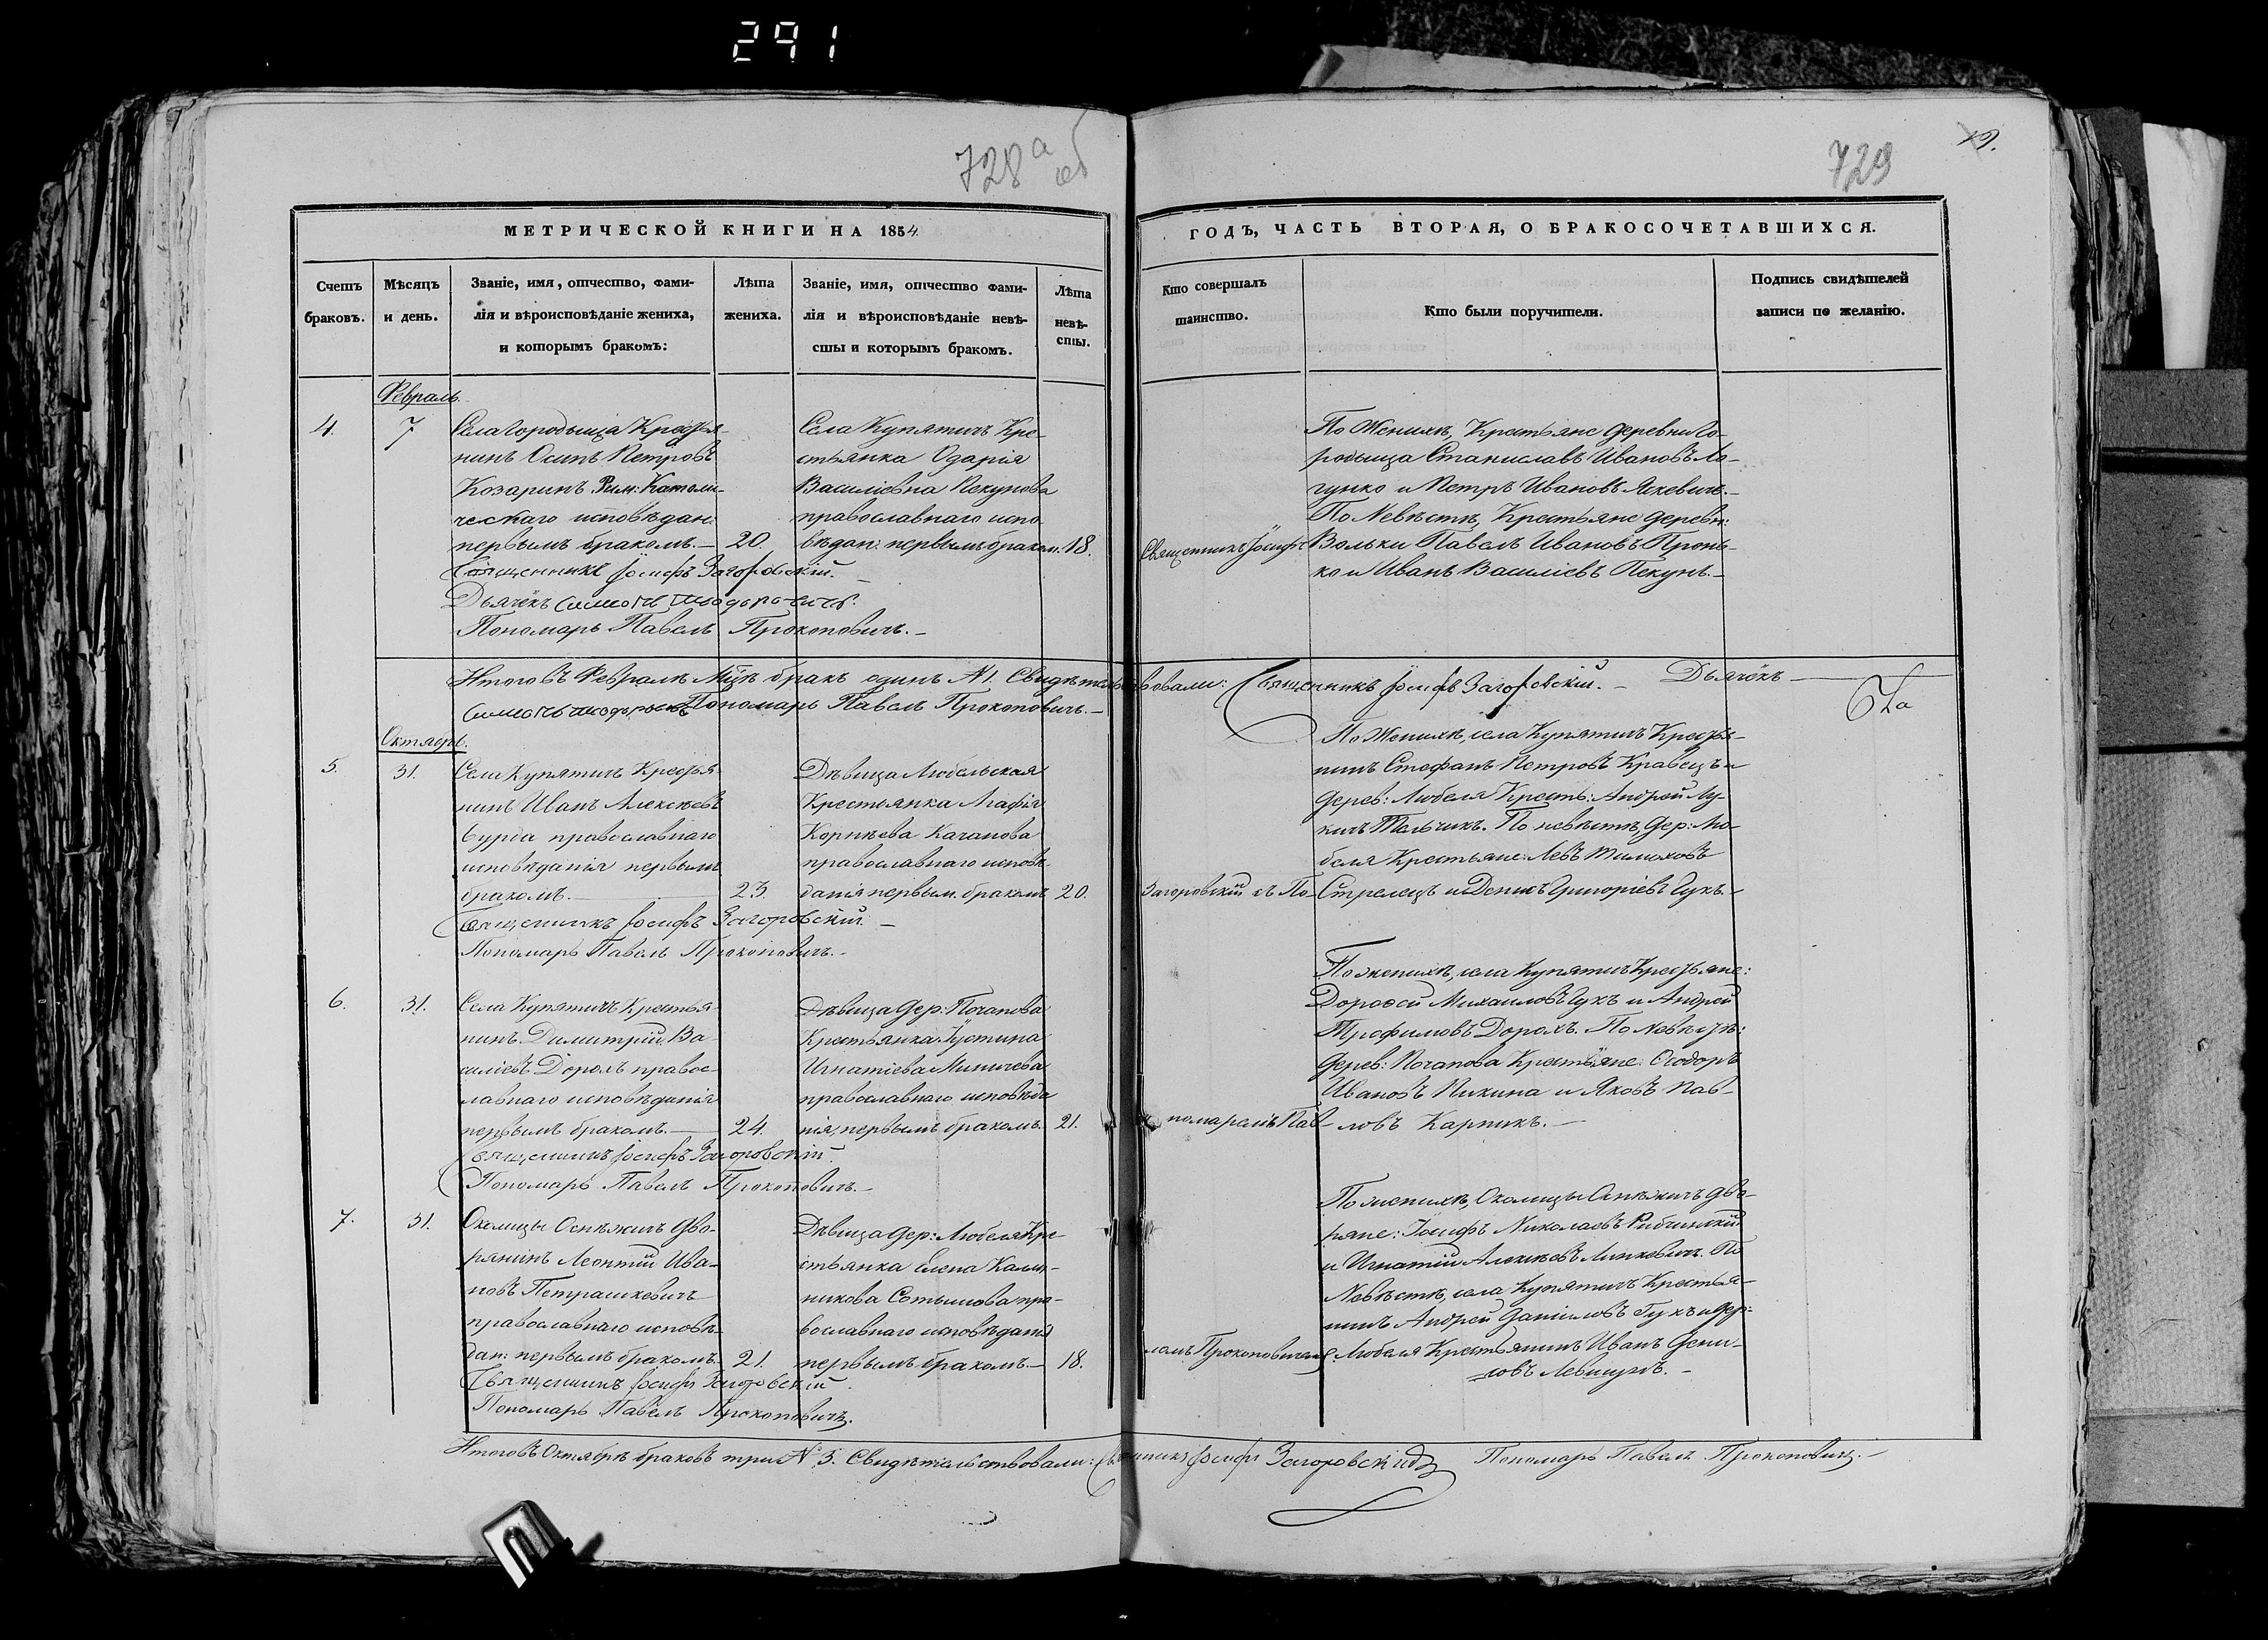 291
728 а об
729
МЕТРИЧЕСКОЙ КНИГИ НА 1854
ГОДЪ, ЧАСТЬ ВТОРАЯ, О БРАКОСОЧЕТАВШИХСЯ.
Счетъ браковъ.
Мѣсяцъ и день.
Званіе, имя, отчество, фами-
лія и вѣроисповѣданіе жениха,
и которымъ бракомъ:
Лѣта жениха.
Званіе, имя, отчество фами-
лія и вѣроисповѣданіе невѣ-
сты и которымъ бракомъ.
Лѣта невѣ-
сты.
Кто совершалъ
таинство.
Кто были поручители.
Подпись свидѣтелей
записи по желанію.
Февраль.
4.
7
Села Городыща Крестья-
нинъ Осипъ Петровъ
Козаринъ Рим: Католи-
ческаго исповѣдан:
первымъ бракомъ.—
20.
Села Купятичъ Кре-
стьянка Одарія
Василіевна Пекунова
православнаго испо-
вѣдан: первымъ браком.
18.
Священникъ Іосифъ
По Женихѣ, Крестьяне деревни Го-
родыща Станиславъ Ивановъ
и Петръ Ивановъ
По Невѣстѣ, Крестьяне деревн:
Вольки Павелъ Ивановъ Пронь-
ко и Иванъ Василіевъ Пекунъ.—
Священникъ Іосифъ Загоровскій.—
Дьячёкъ
Пономарь Павелъ Прокоповичъ.—
Итого въ Февралѣ Мцѣ бракъ одинъ №1. Свидѣтельствовали: Священникъ Іосифъ Загоровскій.— Дьячёкъ —
Пономарь Павелъ Прокоповичъ.—
Октябрь.
5.
31.
Села Купятичъ Крестья-
нинъ Иванъ Алексѣевъ
православнаго
исповѣданія первымъ
бракомъ.—
23.
Дѣвица Любельская
Крестьянка Агафія
Корнѣева Качанова
православнаго исповѣ-
данія первым. бракомъ
20.
Загоровскій съ По-
По Женихѣ, села Купятичъ Крестья-
нинъ Стефанъ Петровъ Кравецъ и
дерев: Любеля Кресть: Андрей Лу-
кичъ. По невѣстѣ, дер: Лю-
беля Крестьяне: Левъ Тимоховъ
Стрелецъ и Денисъ Григоріевъ Гукъ.—
Священникъ Іосифъ Загоровскій.—
Пономарь Павелъ Прокоповичъ.—
6.
31.
Села Купятичъ Крестья-
нинъ Димитрій Ва-
силіевъ Дорохъ правос-
лавнаго исповѣданія
первымъ бракомъ.—
24.
Дѣвица дер: Почапова
Крестьянка Іустина
Игнатіева
православнаго исповѣда
нія, первымъ бракомъ.
21.
номаремъ Пав-
По женихѣ, села Купятичъ Крестьяне:
Дорофей Михаиловъ Гукъ и Андрей
Трофимовъ Дорохъ. По Невѣстѣ:
дерев: Почапова Крестьяне: Ѳеодоръ
Ивановъ Пикина и Яковъ Пав-
ловъ Карпикъ.—
Священникъ Іосифъ Загоровскій
Пономарь Павелъ Прокоповичъ.—
7.
31.
Околицы Оснѣжичъ Дво-
рянинъ Леонтій Ива-
новъ Петрашкевичъ
православнаго исповѣ-
дан: первымъ бракомъ.
21.
Дѣвица дер: Любеля Кре-
стьянка Елена Калин-
никова пра-
вославнаго исповѣданія
первымъ бракомъ.—
18.
ломъ Прокоповичемъ
По женихѣ, Околицы Оснѣжичъ дво-
ряне: Іосифъ Николаевъ
и Игнатій Алексѣевъ. По
Невѣстѣ, села Купятичъ Крестья-
нинъ Андрей Даніиловъ Гукъ и дер:
Любеля Крестьянинъ Иванъ Дени-
совъ Левшукъ.—
Священникъ Іосифъ Загоровскій.
Пономарь Павелъ Прокоповичъ.
Итого въ Октябрѣ браковъ три № 3. Свидѣтельствовали: Священникъ Іосифъ Загоровскій Пономарь Павелъ Прокоповичъ.—